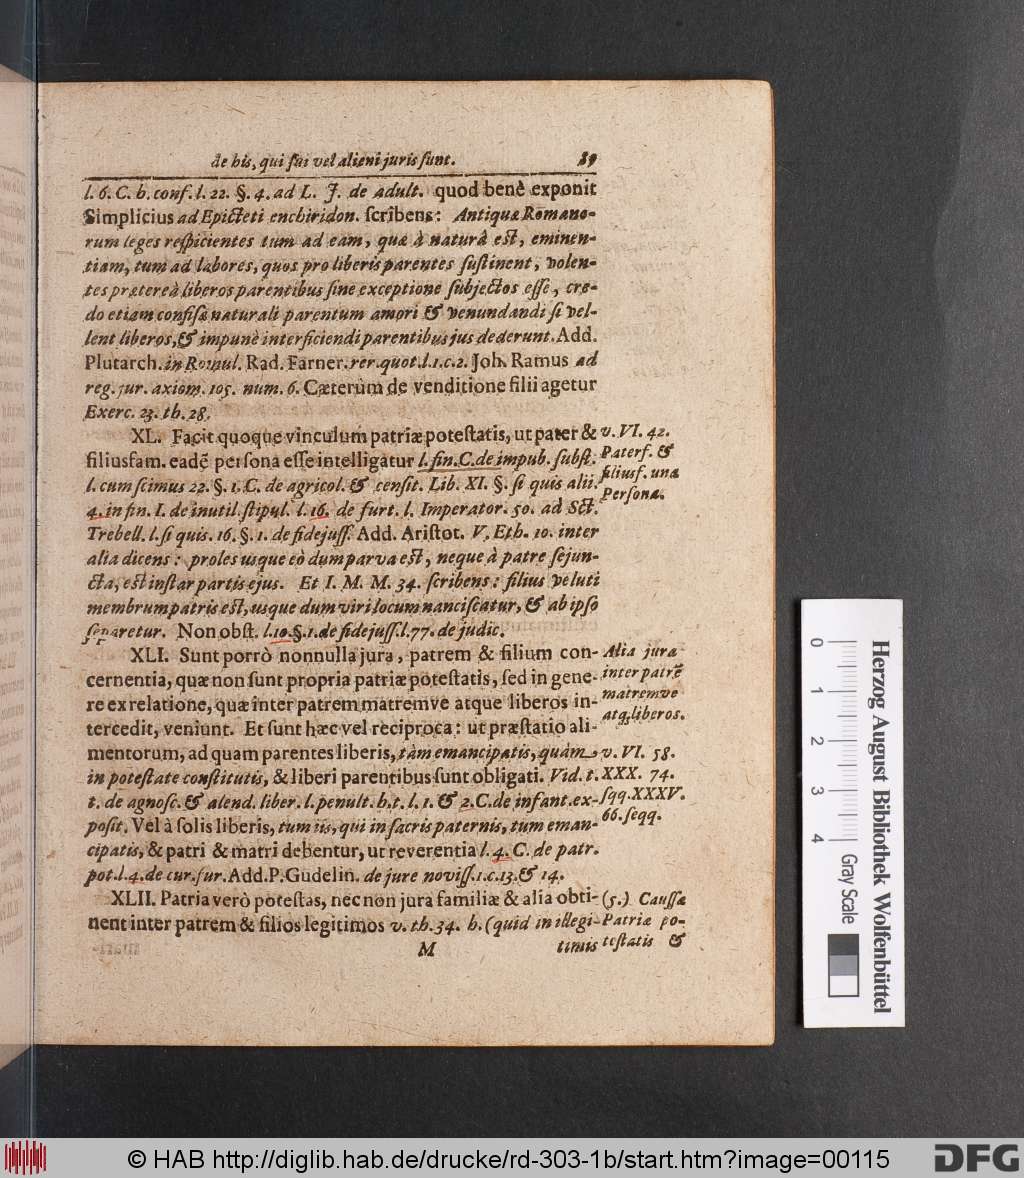 de his, qui sui vel alieni juris sunt. 89
l. 6. C. h. conf. l. 22. §. 4. ad L. J. de adult. quod benè exponit
Simplicius ad Epicteti enchiridon. ſcribens: Antiquæ Romano-
rum leges reſpicientes tum ad eam, quæ à naturâ eſt, eminen-
tiam, tum ad labores, quos pro liberis parentes ſuſtinent, volen-
tes prætereà liberos parentibus ſine exceptione ſubjectos eſſe, cre-
do etiam confiſæ naturali parentum amori & venundandi ſi vel-
lent liberos, & impunè interficiendi parentibus jus dederunt. Add.
Plutarch. in Romul. Rad. Farner. rer. quot. l. 1. c. 2. Joh. Ramus ad
reg. jur. axiom. 105. num. 6. Cæterùm de venditione filii agetur
Exerc. 23. th. 28.
XL. Facit quoque vinculum patriæ poteſtatis, ut pater &
filiusfam. eadē perſona eſſe intelligatur l. fin. C. de impub. ſubſt.
l. cum ſcimus 22. §. 1. C. de agricol. & cenſit. Lib. XI. §. ſi quis alii.
4. in fin. I. de inutil. ſtipul. l. 16. de furt. l. Imperator. 50. ad Sct.
Trebell. l. ſi quis. 16. §. 1. de fidejuſſ. Add. Ariſtot. V. Eth. 10. inter
alia dicens: proles usque eò dum parva eſt, neque à patre ſejun-
cta, eſt inſtar partis ejus. Et I. M. M. 34. ſcribens: filius veluti
membrum patris eſt, usque dum viri locum nanciſcatur, & ab ipſo
ſeparetur. Non obſt. l. 10. §. 1. de fidejuſſ. l. 77. de judic.
v. VI. 42.
Paterf. &
filiusf. una
Perſona.
XLI. Sunt porrò nonnulla jura, patrem & filium con-
cernentia, quæ non ſunt propria patriæ poteſtatis, ſed in gene-
re ex relatione, quæ inter patrem matremve atque liberos in-
tercedit, veniunt. Et ſunt hæc vel reciproca: ut præſtatio ali-
mentorum, ad quam parentes liberis, tàm emancipatis, quàm
in poteſtate conſtitutis, & liberi parentibus ſunt obligati. Vid. t.
t. de agnoſc. & alend. liber. l. penult. h. t. l. 1. & 2. C. de infant. ex-
poſit. Vel à ſolis liberis, tum iis, qui in ſacris paternis, tum eman-
cipatis, & patri & matri debentur, ut reverentia l. 4. C. de patr.
pot. l. 4. de cur. fur. Add. P. Gudelin. de jure noviſſ. 1. c. 13. & 14.
Alia jura
inter patrē
matremve
atq; liberos.
v. VI. 58.
XXX. 74.
ſqq. XXXV.
66. ſeqq.
XLII. Patria verò poteſtas, nec non jura familiæ & alia obti-
nent inter patrem & filios legitimos v. th. 34. h. (quid in illegi-
(5.) Cauſſæ
Patriæ po-
teſtatis &
M timis
0 1 2 3 4
Gray Scale
Herzog August Bibliothek Wolfenbüttel
© HAB http://diglib.hab.de/drucke/rd-303-1b/start.htm?image=00115
DFG